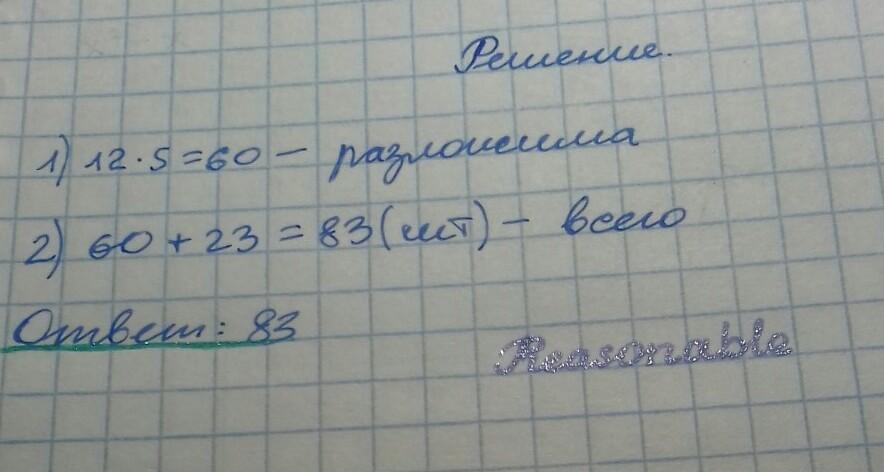 Решение.
1) 12·5=60 – разложила
2) 60+23=83(шт) – всего
Ответ: 83
Reasonable